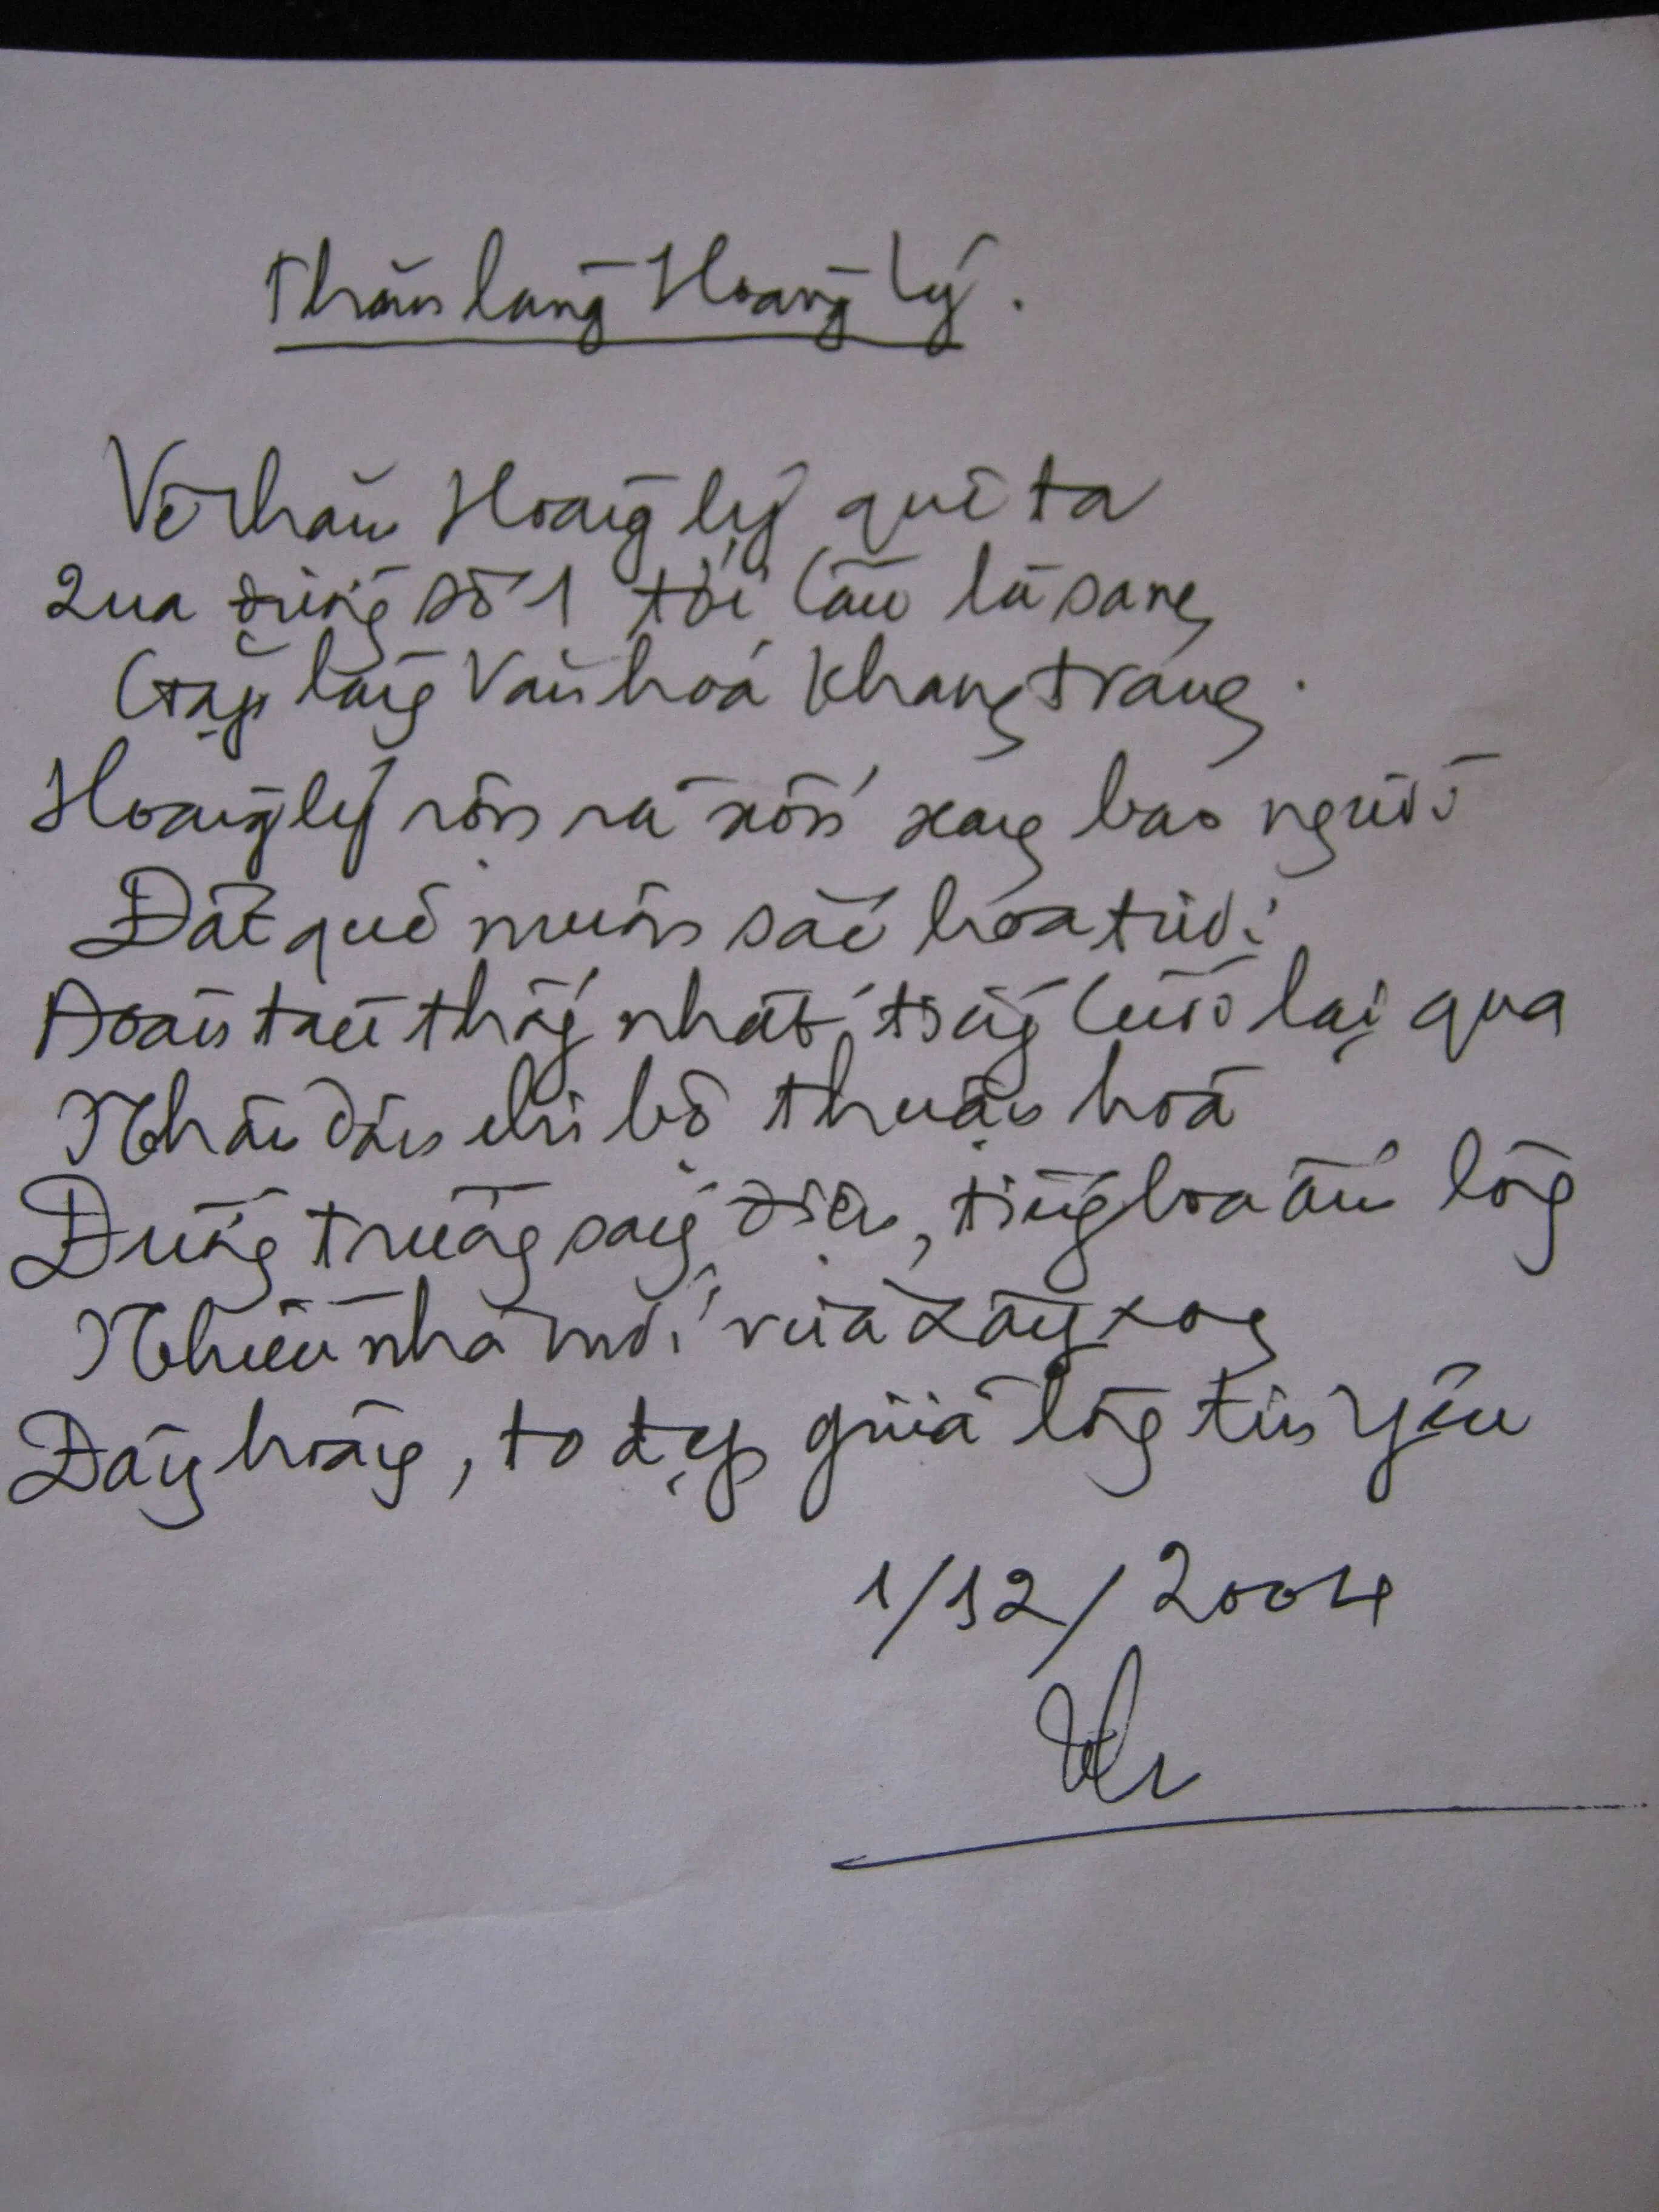 Thăm làng Hoàng Lý.
Về thăm Hoàng lý quê ta
Qua đường số 1 tới Cầu là sang
Gặp làng Văn hoá Khang trang.
Hoàng lý rộn rã xốn xang bao người
Đất quê muôn sắc hoa tươi
Đoàn kết thống nhất, tiếng cười lại qua
Nhân dân chi bộ thuận hoà
Đường trường sáng điện, tiếng loa ấm lòng
Nhiều nhà mới vừa xây xong
Đàng hoàng, to đẹp giữa lòng tin yêu
1/12/2004